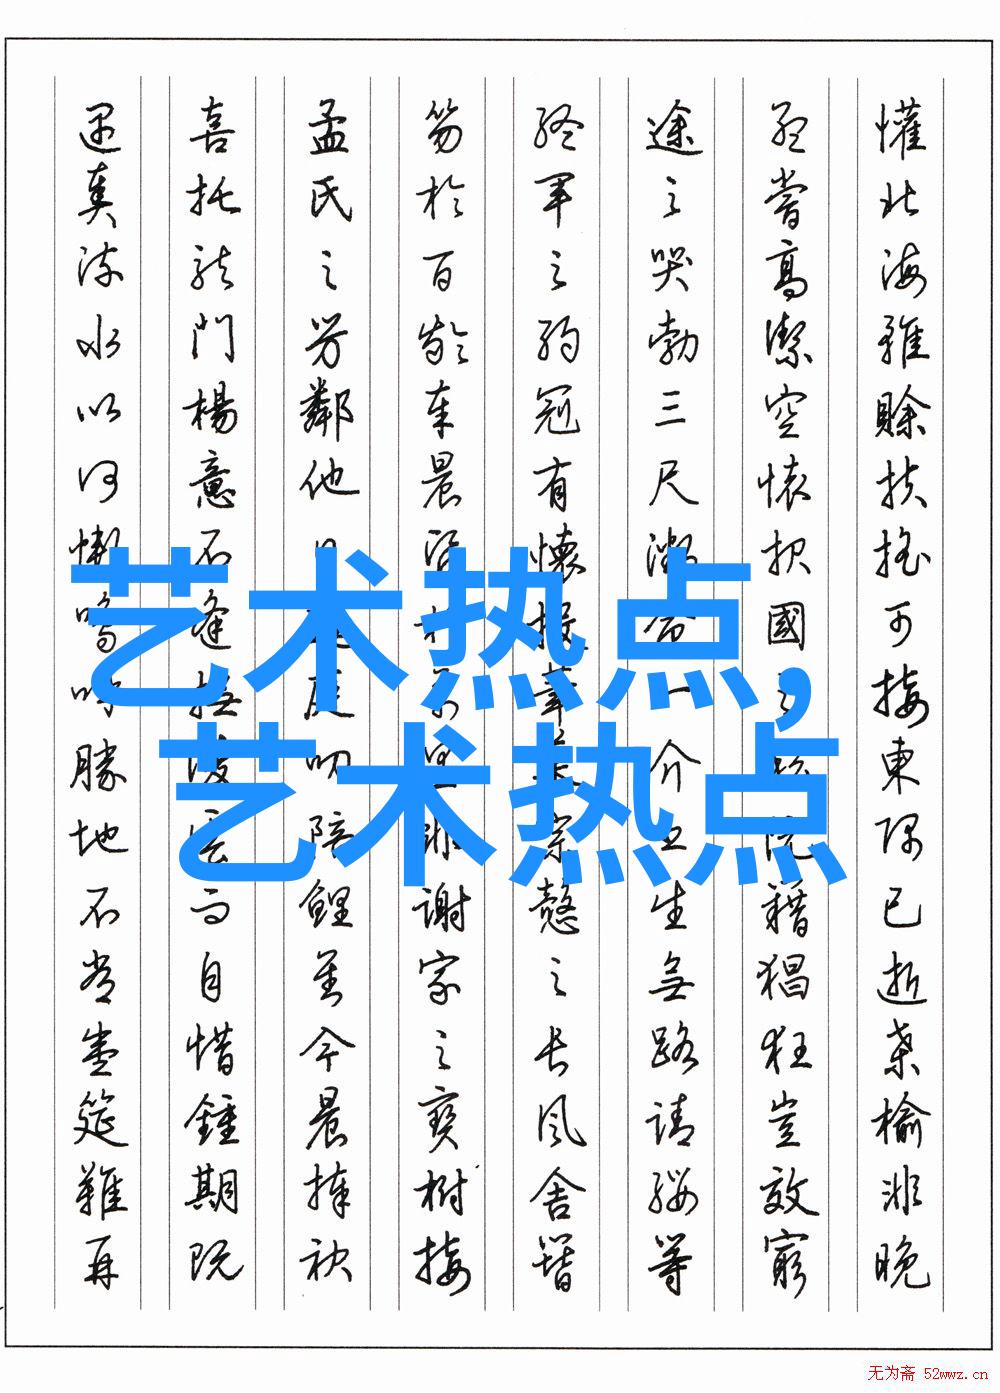 懽北海雖賒扶搖可接東隅已逝桑榆非晚
孟嘗高潔空懷报國之阮籍猖狂豈效窮
途之哭勃三尺微命一介書生無路請纓等
終軍之弱冠有懷投筆慕宗慤之長風舍簪
笏於百齡奉晨昏於萬里非謝家之寶樹接
孟氏之芳鄰他日趨庭叨陪鯉對今晨捧袂
喜托龍門楊意不逢撫凌雲而自惜鍾期既
遇奏流水以何慚嗚呼勝地不常盛筵難再
艺术热点,
艺术热点
无为斋 52wwz.cn